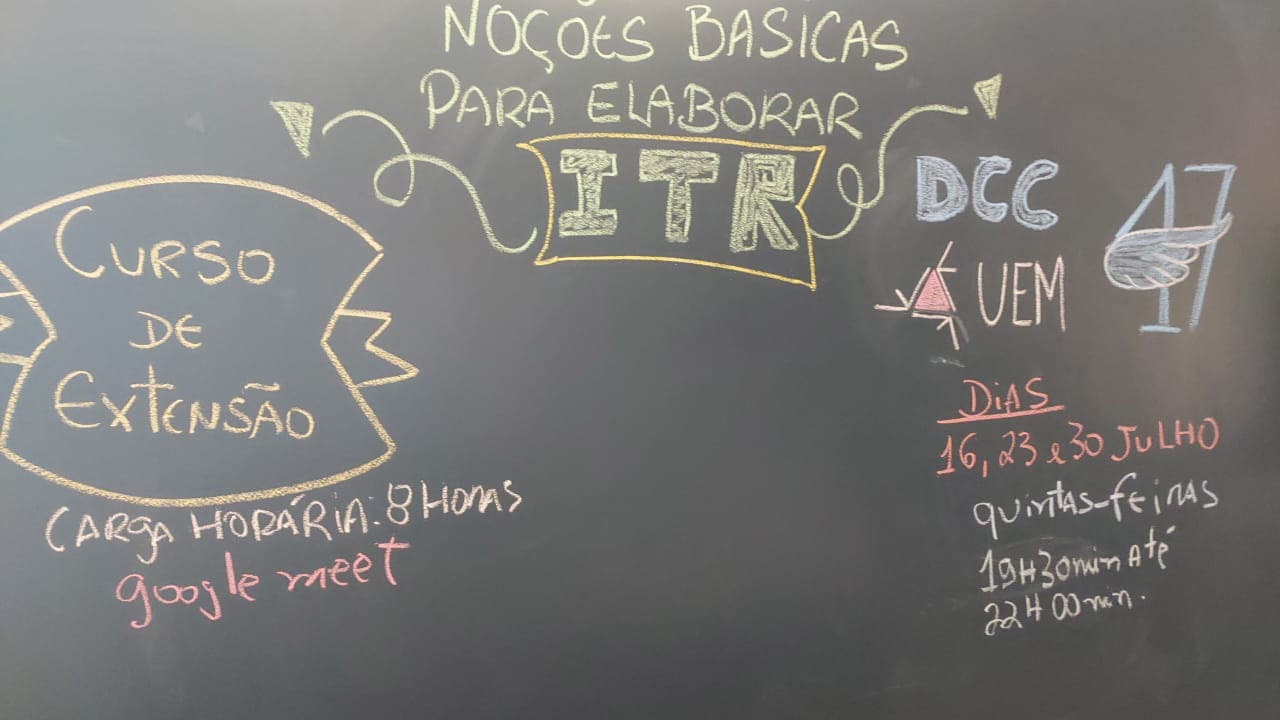 NOÇÕES BASICAS
PARA ELABORAR
ITR
CURSO
DE
EXTENSÃO
CARGA HORÁRIA: 8 HORAS
google meet
DCC
UEM
47
DIAS
16, 23 e 30 JULHO
quintas-feiras
19H30min Até
22H00min.